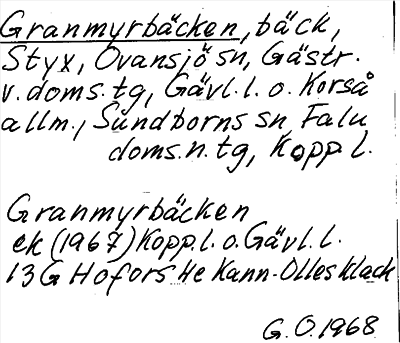 Granmyrbäcken, bäck,
Styx, Ovansjö sn, Gästr.
v. doms. tg, Gävl. l. o. Korså
allm., Sundborns sn Falu
doms. n. tg, Kopp. l.
Granmyrbäcken
ek (1967) Kopp. l. o. Gävl. l.
13G Hofors 4e Kann-Ollesklack
G. O. 1968